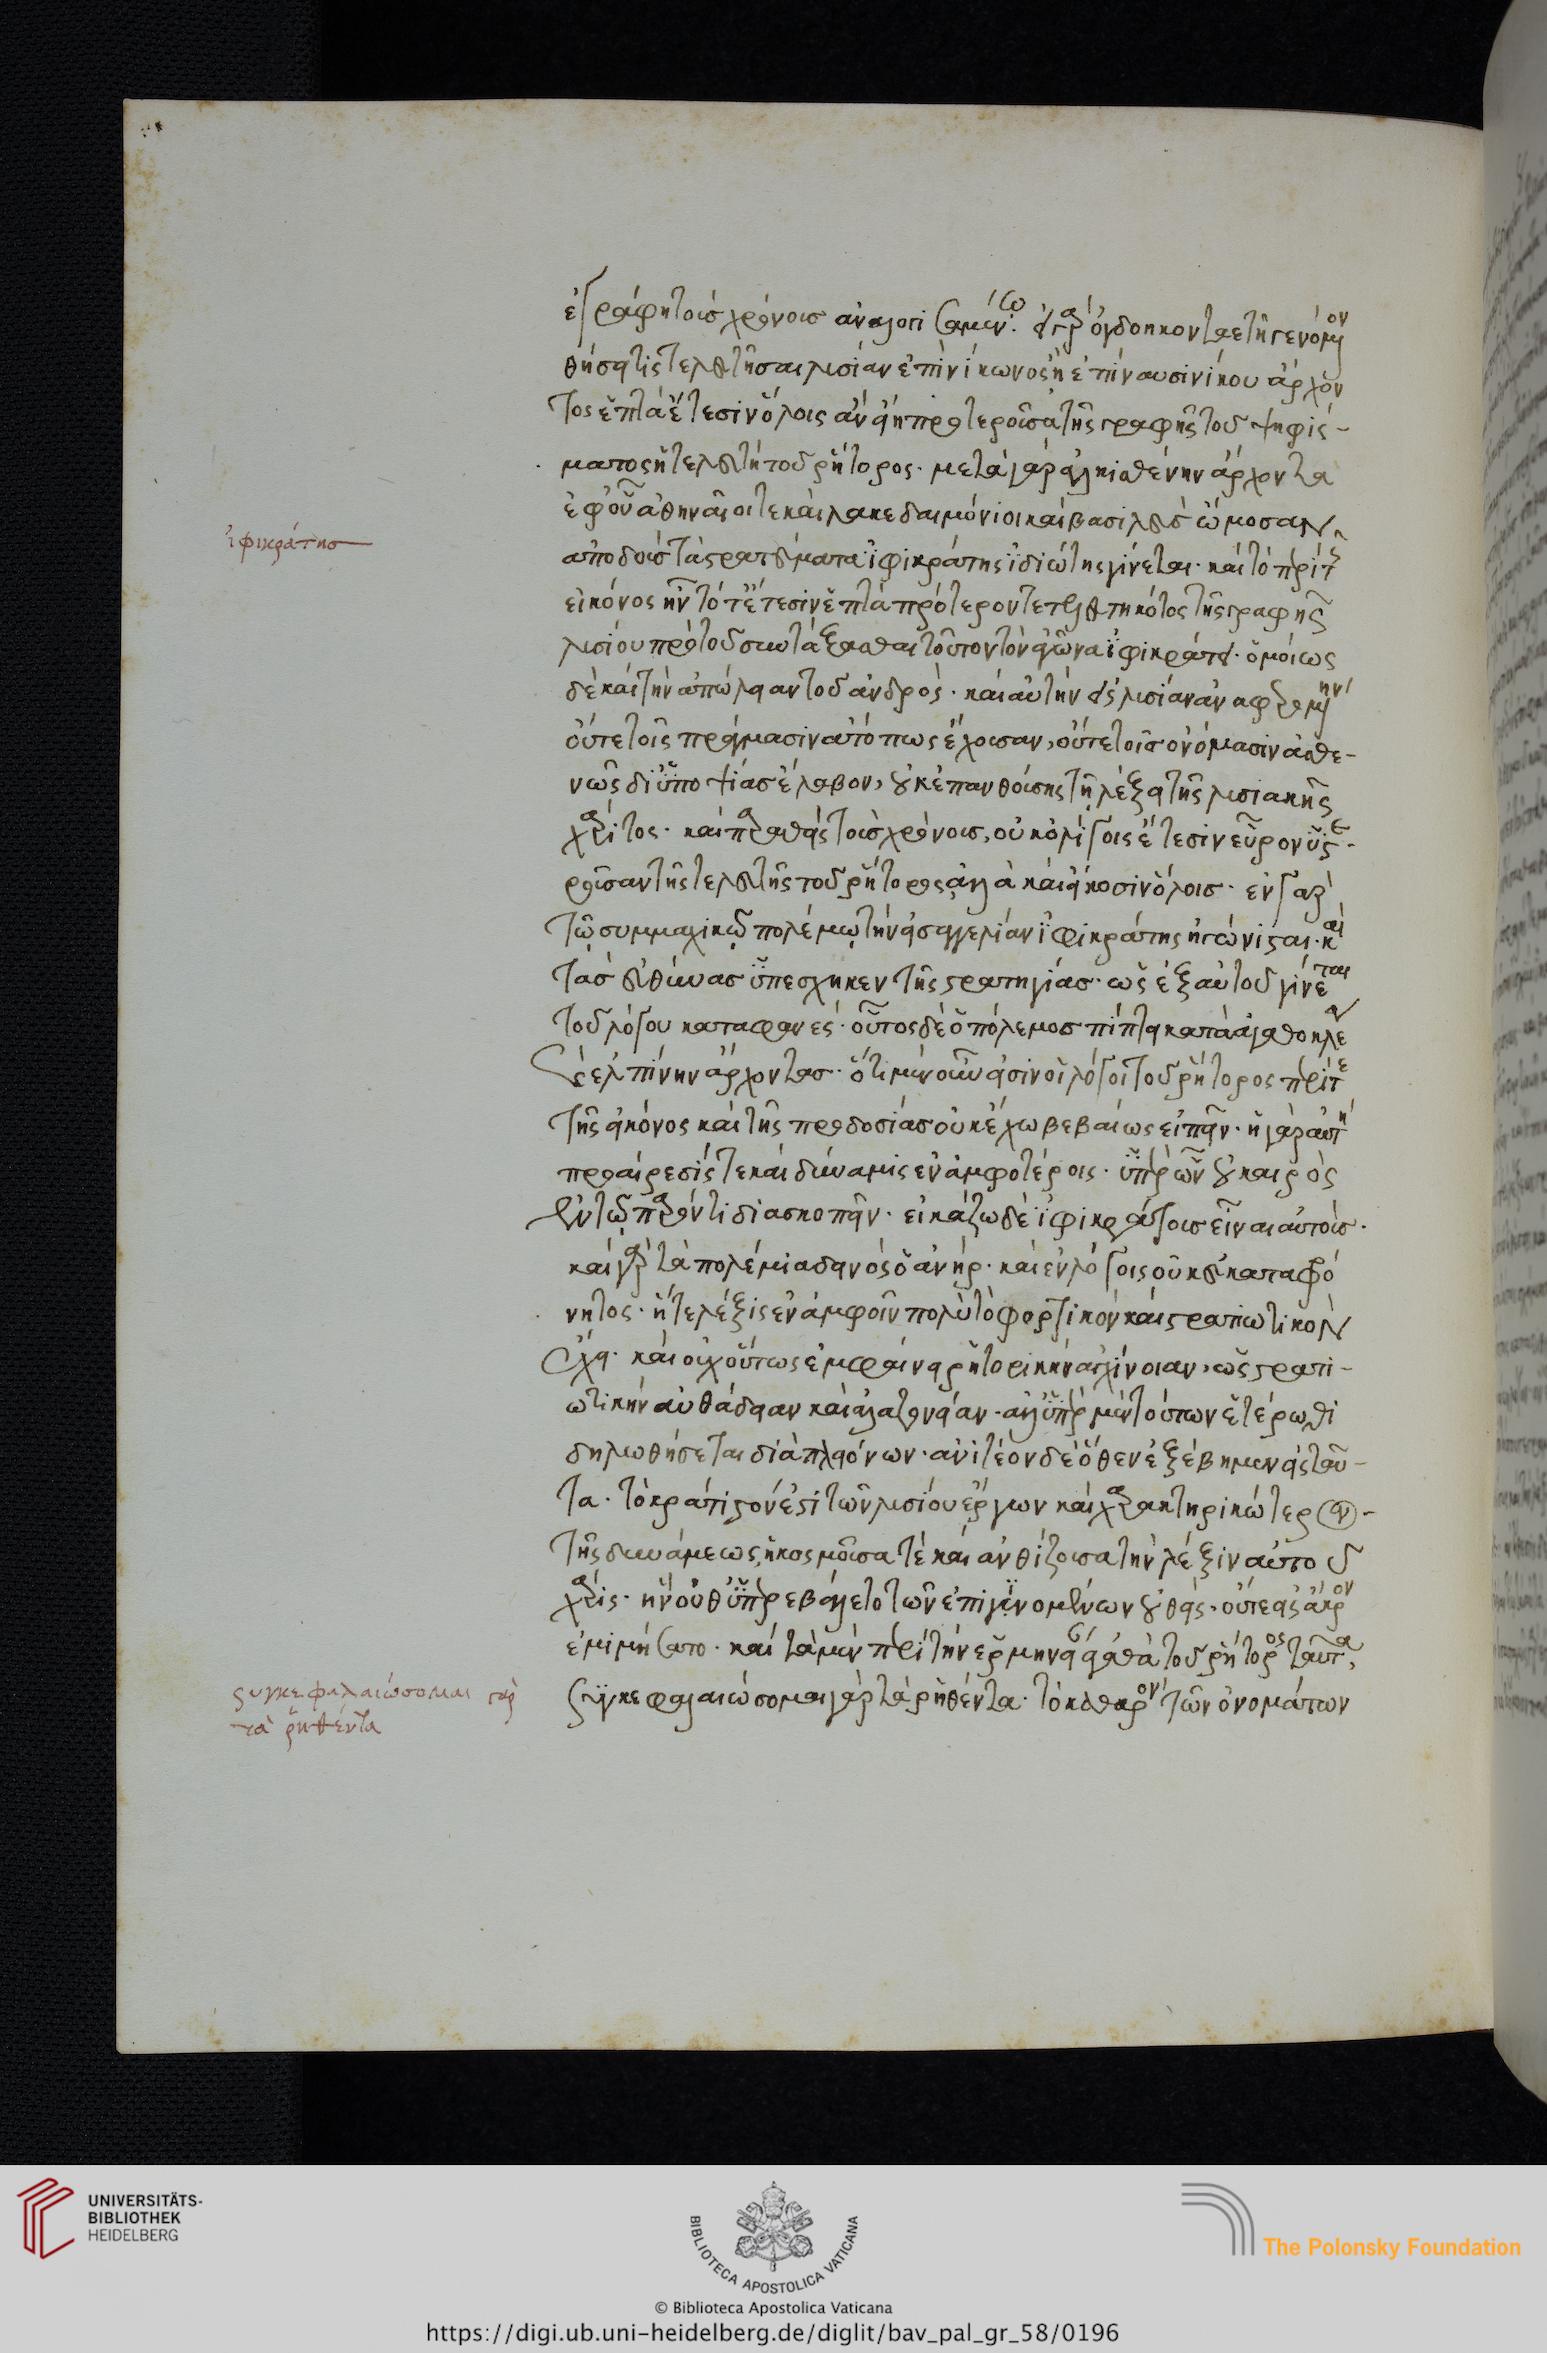 ἐγράφη τοῖς χρόνοις ἀναλογισαμένω. εἰ γὰρ ὀγδοηκονταέτη γενόμενον
θήσει τις τελευτῆσαι λυσίαν ἐπὶ νίκωνος ἢ ἐπὶ ναυσινίκου ἄρχον
τος ἑπτὰ ἔτεσιν ὅλοις ἂν εἴη προτεροῦσα τῆς γραφῆς τοῦ ψηφίσ-
ματος ἡ τελευτὴ τοῦ ῥήτορος. μετὰ γὰρ ἀλκισθένην ἄρχοντα
ἐφ' οὗ ἀθηναῖοί τε καὶ λακεδαιμόνιοι καὶ βασιλεὺς ὤμοσαν
ἀποδοὺς τὰ στρατεύματα ἰφικράτης ἰδιώτης γίνεται. καὶ τὸ περὶ τῆς
εἰκόνος ἦν τότ' ἔτεσιν ἑπτὰ πρότερον τετελευτηκότος τῆς γραφῆς
λυσίου πρὸ τοῦ συντάξασθαι τοῦτον τὸν ἀγῶνα ἰφικράτει. ὁμοίως
δὲ καὶ τὴν ἀπώλειαν τοῦ ἀνδρός. καὶ αὐτὴν εἰς λυσίαν ἀναφερομένην
οὔτε τοῖς πράγμασιν ἀτόπως ἔχουσαν, οὔτε τοῖς ὀνόμασιν ἀσθε-
νῶς δι' ὑποψίας ἔλαβον, οὐκ ἐπανθούσης τῇ λέξει τῆς λυσιακῆς
χάριτος. καὶ παραθεὶς τοῖς χρόνοις, οὐκ ὀλίγοις ἔτεσιν εὗρον ὑστε-
ροῦσαν τῆς τελευτῆς τοῦ ῥήτορος, ἀλλὰ καὶ εἴκοσιν ὅλοις. ἐν γὰρ
τῷ συμμαχικῷ πολέμῳ τὴν εἰσαγγελίαν ἰφικράτης ἠγώνισται. καὶ
τὰς εὐθύνας ὑπέσχηκεν τῆς στρατηγίας. ὡς ἐξ αὐτοῦ γίνεται
τοῦ λόγου καταφανές. οὗτος δὲ ὁ πόλεμος πίπτει κατὰ ἀγαθοκλέα
καὶ ἐλπίνην ἄρχοντας. ὅτι μὲν οὖν εἰσὶν οἱ λόγοι τοῦ ῥήτορος περί τε
τῆς εἰκόνος καὶ τῆς προδοσίας οὐκ ἔχω βεβαίως εἰπεῖν. ἡ γὰρ αὐτὴ
προαίρεσίς τε καὶ δύναμις ἐν ἀμφοτέροις. ὑπὲρ ὧν οὐ καιρὸς
ἐν τῷ παρόντι διασκοπεῖν. εἰκάζω δὲ ἰφικράτους εἶναι αὐτούς.
καὶ γὰρ τὰ πολέμια δεινὸς ὁ ἀνήρ. καὶ ἐν λόγοις οὐκ εὐκαταφρό
νητος. ἥ τε λέξις ἐν ἀμφοῖν πολὺ τὸ φορτικὸν καὶ στρατιωτικὸν
ἔχει. καὶ οὐχ οὕτως ἐμφαίνει ῥητορικὴν ἀγχίνοιαν, ὡς στρατι-
ωτικὴν αὐθάδειαν καὶ ἀλαζονείαν. ἀλλ' ὑπὲρ μὲν τούτων ἑτέρωθι
δηλωθήσεται διὰ πλειόνων. ἀνιτέον δὲ ὅθεν ἐξέβημεν εἰς ταῦ-
τα. τὸ κράτιστόν ἐστι τῶν λυσίου ἔργων καὶ χαρακτηρικώτερον
τῆς δυνάμεως, ἡ κοσμοῦσά τε καὶ ἀνθίζουσα τὴν λέξιν αὐτοῦ
χάρις. ἣν οὔθ' ὑπερεβάλετο τῶν ἐπιγινομένων οὐθείς. οὔτε εἰς ἄκρον
ἐμιμήσατο. καὶ τὰ μὲν περὶ τὴν ἑρμηνείαν ἀγαθὰ τοῦ ῥήτορος ταῦτα,
συγκεφαλαιώσομαι γὰρ τὰ ῥηθέντα. τὸ καθαρὸν τῶν ὀνομάτων
ἰφικράτης
συγκεφαλαιώσομαι γὰρ
τὰ ῥηθέντα
UNIVERSITÄTS-
BIBLIOTHEK
HEIDELBERG
BIBLIOTECA APOSTOLICA VATICANA
The Polonsky Foundation
© Biblioteca Apostolica Vaticana
https://digi.ub.uni-heidelberg.de/diglit/bav_pal_gr_58/0196